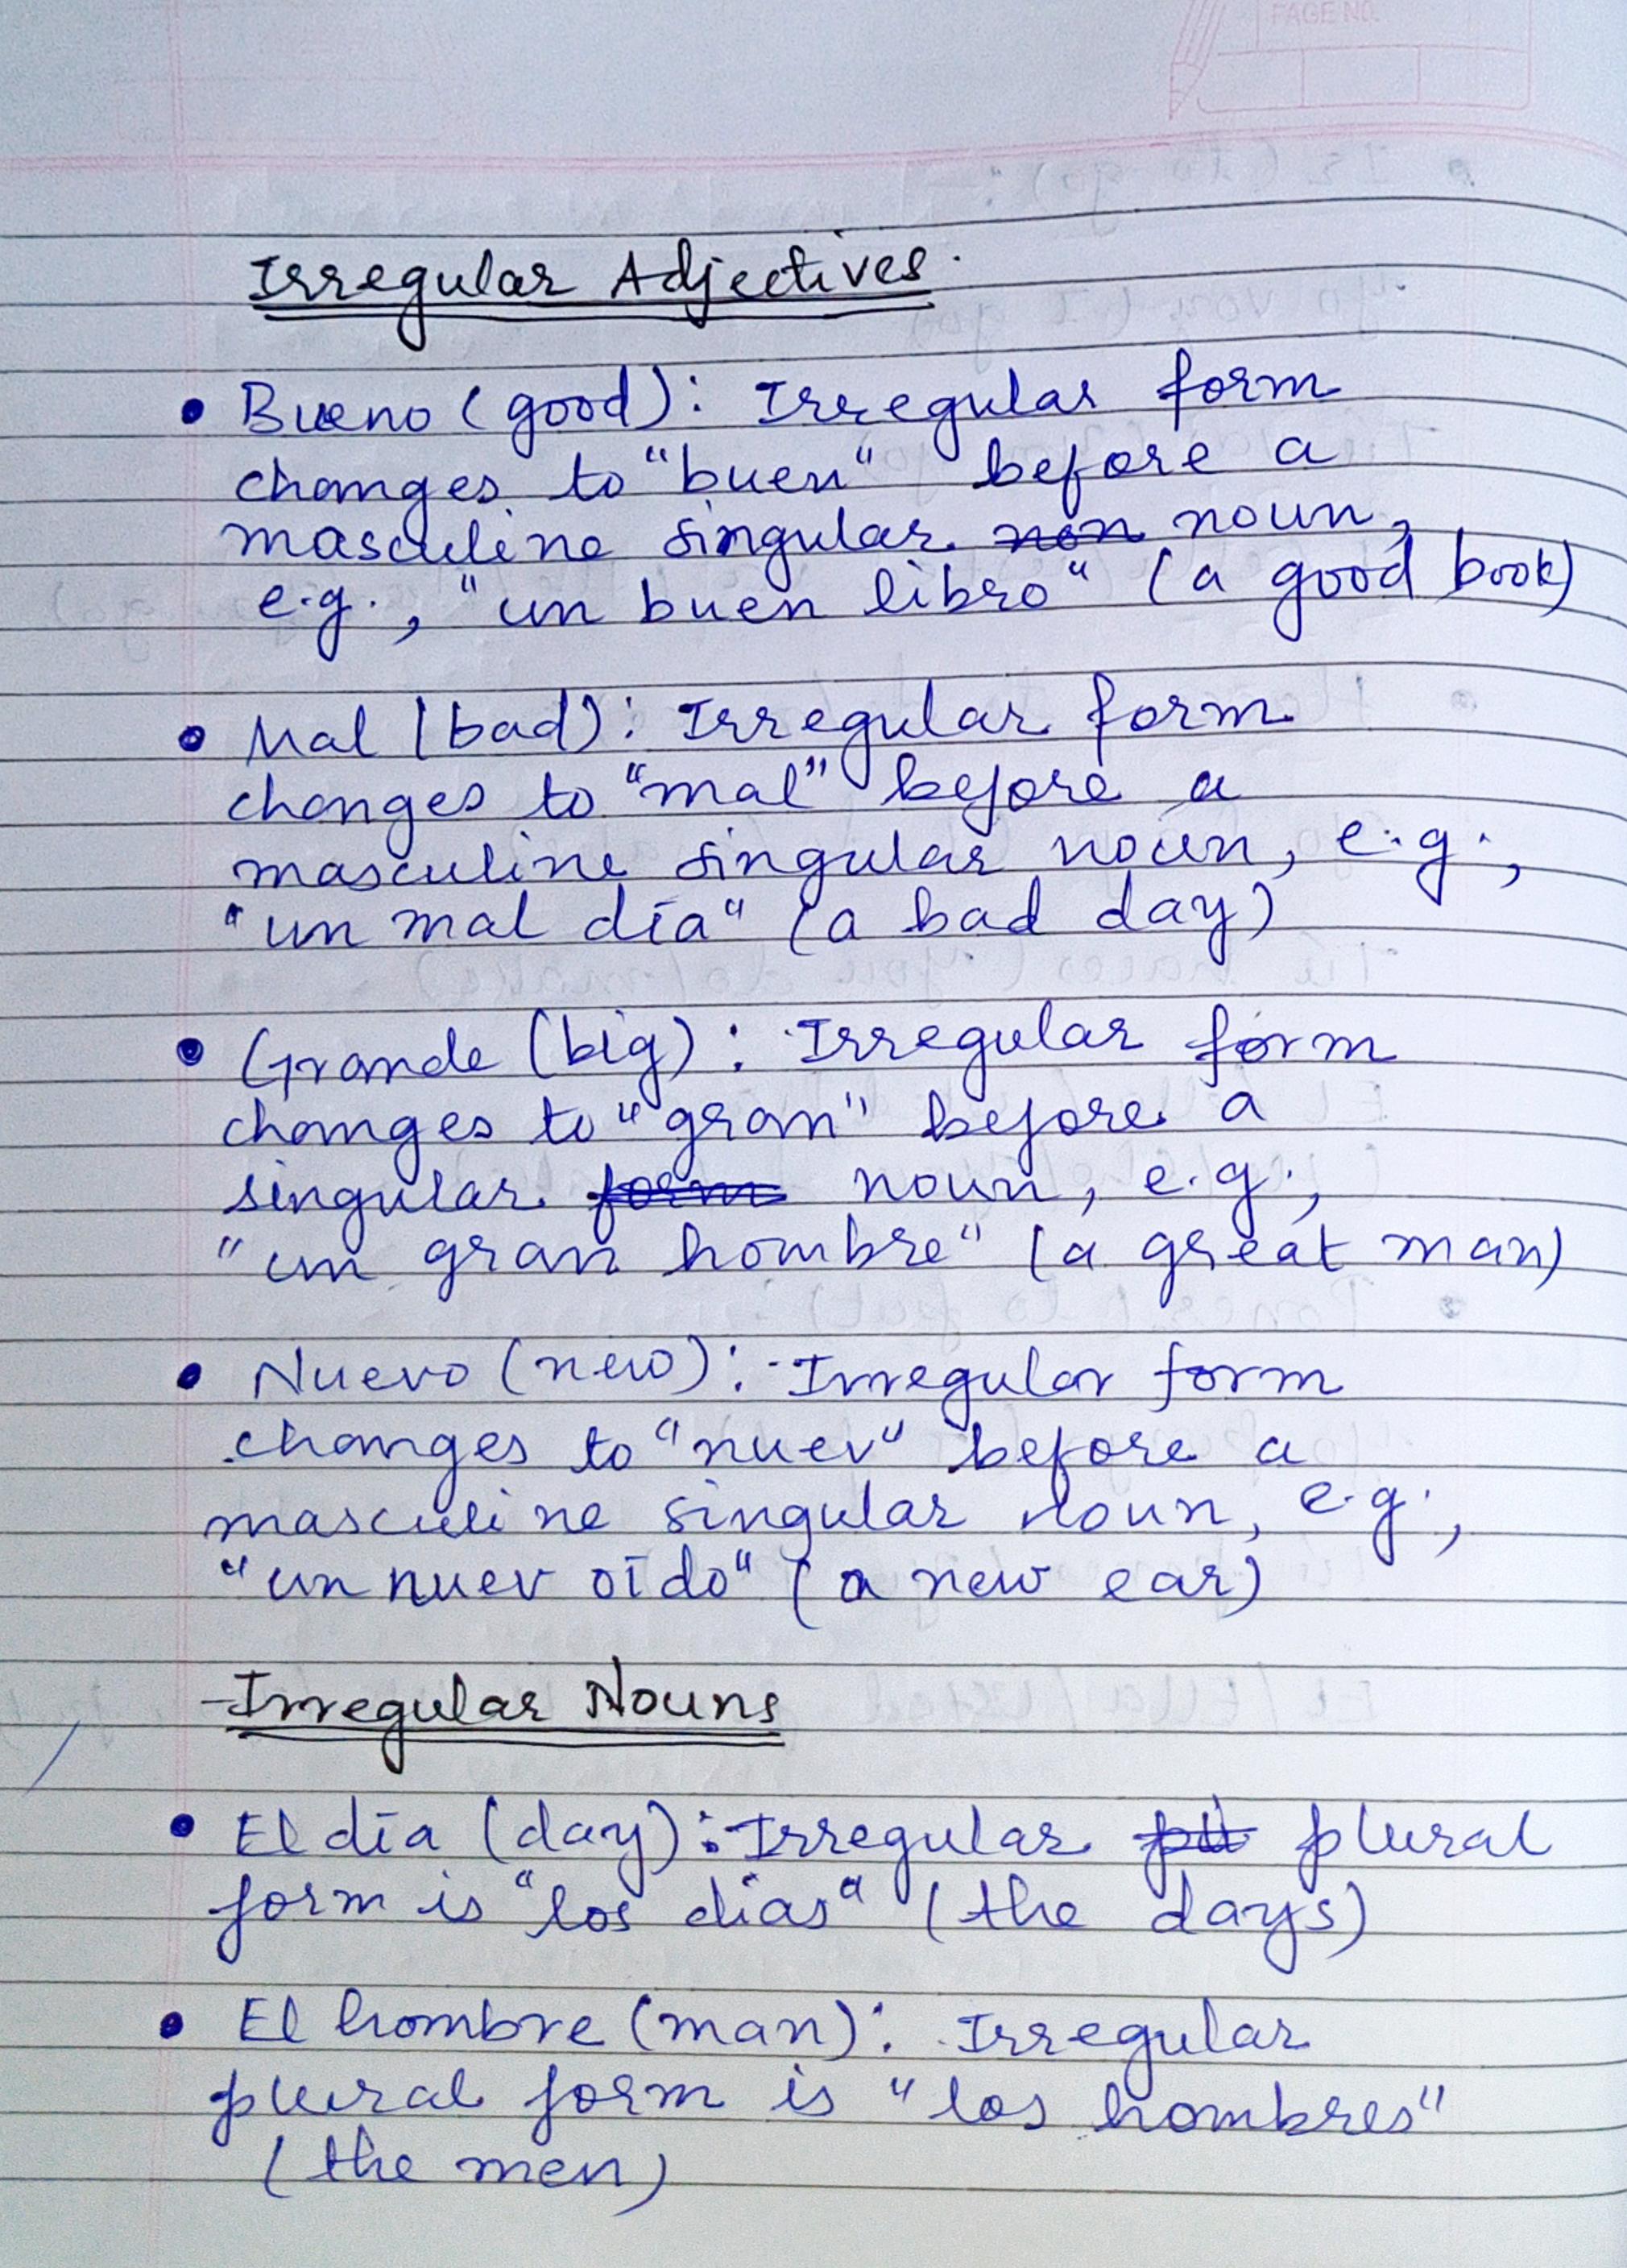 PAGE NO.
Irregular Adjectives.
• Bueno (good): Irregular form
changes to "buen" before a
masculine singular non noun,
e.g., "un buen libro" (a good book)
• Mal (bad): Irregular form
changes to "mal" before a
masculine singular noun, e.g.,
"un mal día" (a bad day)
• Grande (big): Irregular form
changes to "gran" before a
singular form noun, e.g.,
"un gran hombre" (a great man)
• Nuevo (new): Irregular form
changes to "nuev" before a
masculine singular noun, e.g.,
"un nuev oído" (a new ear)
Irregular Nouns
• El día (day): Irregular plural
form is "los días" (the days)
• El hombre (man): Irregular
plural form is "los hombres"
(the men)